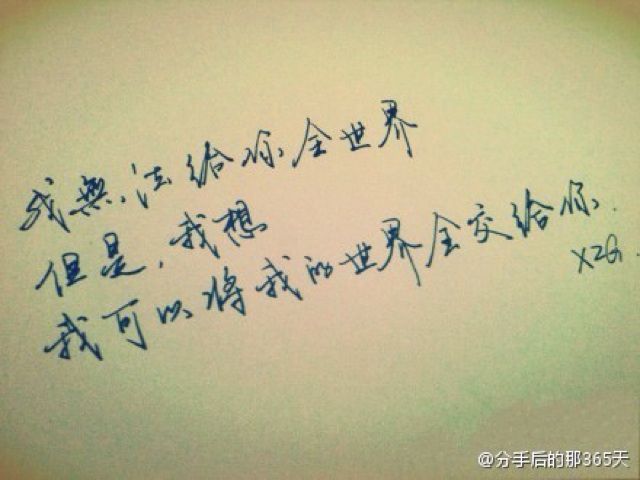 我無法给你全世界
但是，我想
我可以将我的世界全交给你.
XZG.
@分手后的那365天